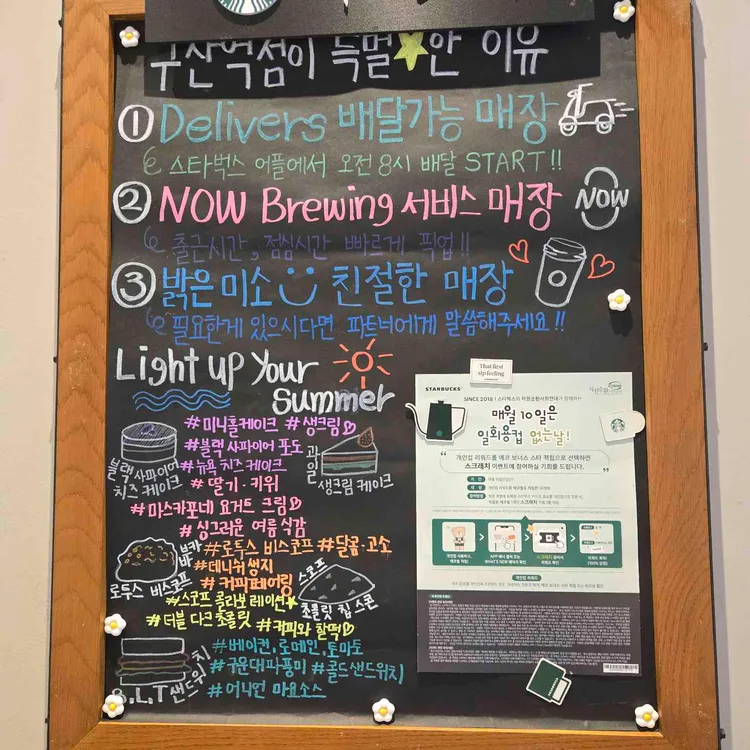 부산역점이 특별한 이유
① Delivers 배달가능 매장
스타벅스 어플에서 오전 8시 배달 START!!
② NOW Brewing 서비스 매장
NOW
출근시간, 점심시간 빠르게 픽업!!
③ 밝은 미소 친절한 매장
필요한게 있으시다면 파트너에게 말씀해주세요!!
Light up your
summer
#미니홀케이크 #생크림
#블랙 사파이어 포도
#뉴욕 치즈 케이크
#딸기·키위
#마스카포네 요거트 크림
#싱그러운 여름 식감
블랙 사파이어
치즈 케이크
과일
생크림 케이크
#로투스 비스코프 #달콤·고소
#데니쉬쌩지
#커피페어링
로투스 비스코프
#스코프 콜라보레이션
#더블 다크 초콜릿 #커피와 함께
스코프
초콜릿 칩 스콘
#베이컨.로메인.토마토
#구운대파풍미 #콜드샌드위치
#어니언 마요소스
B.L.T 샌드위치
That first
sip feeling
STARBUCKS
SINCE 2018 | 스타벅스와 자원순환사회연대가 함께하는
매월 10일은
일회용컵 없는날!
개인컵 리워드를 에코 보너스 스타 적립으로 선택하면
스크래치 이벤트에 참여하실 기회를 드립니다.
개인컵 리워드